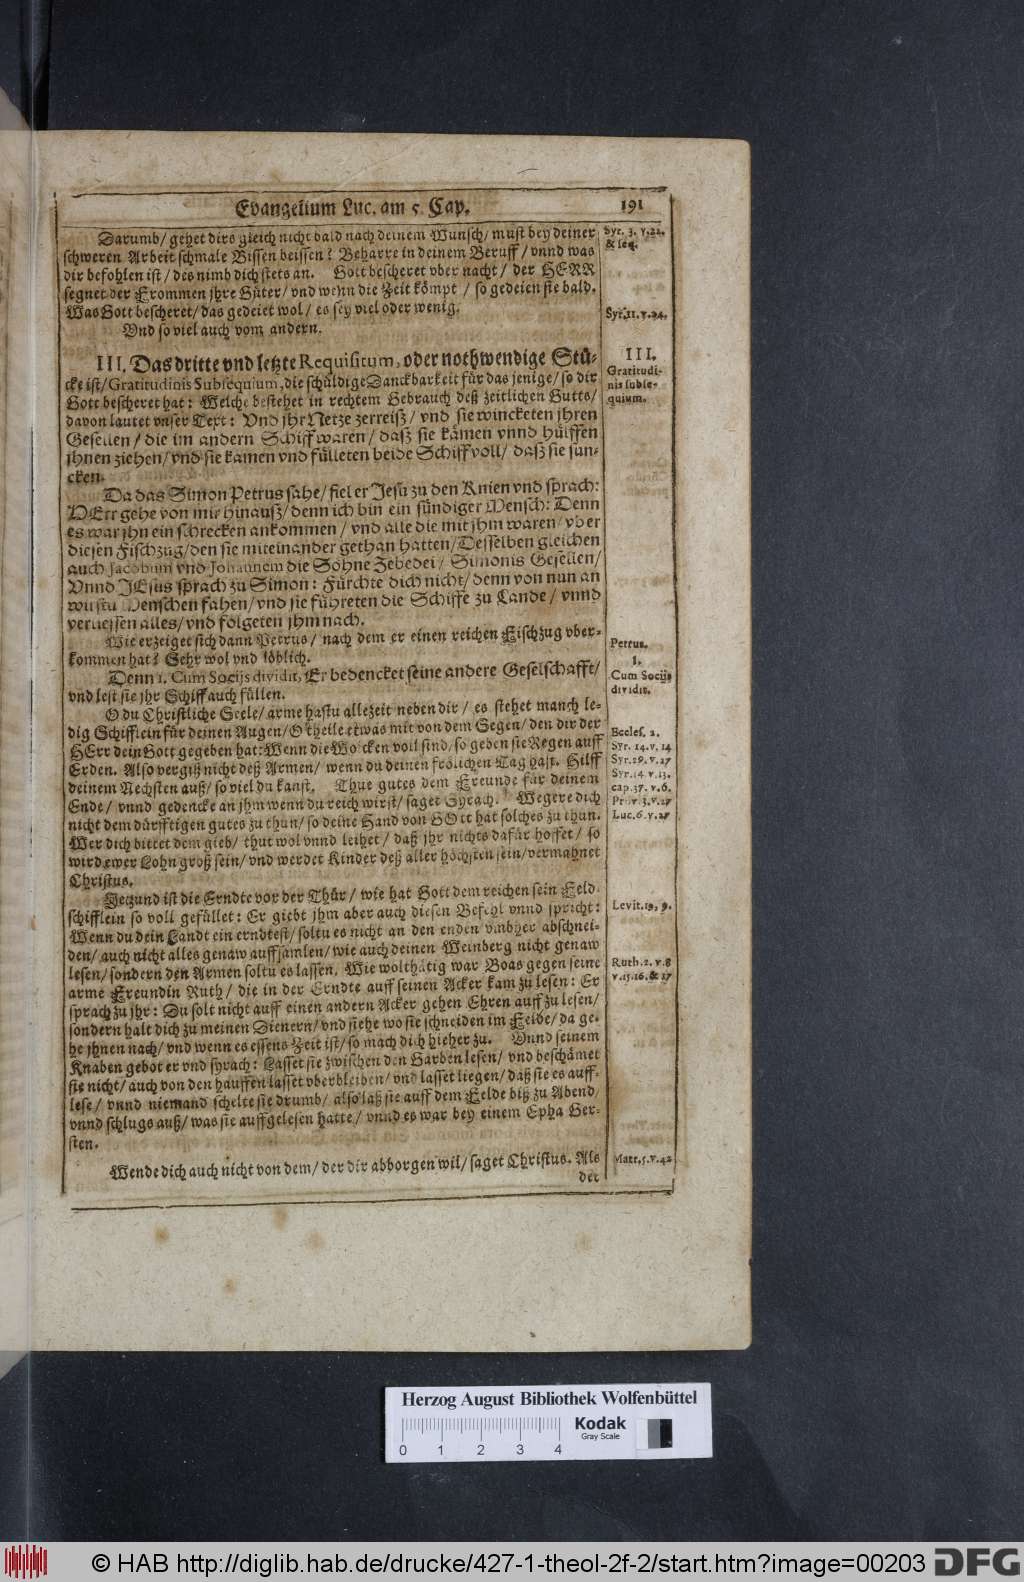 Evangelium Luc. am 5. Cap. 191
Darumb/ gehet dirs gleich nicht bald nach deinem Wunsch/ must bey deiner
schweren Arbeit schmale Bissen beissen? Beharre in deinem Beruff/ vnnd was
dir befohlen ist/ des nimb dich stets an. Gott bescheret vber nacht/ der HERR
segnet der Frommen jhre Güter/ vnd wenn die Zeit kömpt/ so gedeien sie bald.
Was Gott bescheret/ das gedeiet wol/ es sey viel oder wenig.
Vnd so viel auch vom andern.
III. Das dritte vnd letzte Requisitum, oder nothwendige Stü-
cke ist/ Gratitudinis Subsequium, die schüldige Danckbarkeit für das jenige/ so dir
Gott bescheret hat: Welche bestehet in rechtem Gebrauch deß zeitlichen Gutts/
davon lautet vnser Text: Vnd jhr Netze zerreiß/ vnd sie wincketen jhren
Gesellen/ die im andern Schiff waren/ daß sie kämen vnnd hülffen
jhnen ziehen/ vnd sie kamen vnd fülleten beide Schiff voll/ daß sie sun-
cken.
Da das Simon Petrus sahe/ fiel er Jesu zu den Knien vnd sprach:
HErr gehe von mir hinauß/ denn ich bin ein sündiger Mensch: Denn
es war jhn ein schrecken ankommen/ vnd alle die mit jhm waren/ vber
diesen Fischzug/ den sie miteinander gethan hatten/ Desselben gleichen
auch Jacobum vnd Johannem die Söhne Zebedei/ Simonis Gesellen/
Vnnd JEsus sprach zu Simon: Fürchte dich nicht/ denn von nun an
wirstu Menschen fahen/ vnd sie führeten die Schiffe zu Lande/ vnnd
verliessen alles/ vnd folgeten jhm nach.
Wie erzeiget sich dann Petrus/ nach dem er einen reichen Fischzug vber-
kommen hat? Sehr wol vnd löblich.
Denn 1. Cum Socijs dividit, Er bedencket seine andere Geselschafft/
vnd lest sie jhr Schiff auch füllen.
O du Christliche Seele/ arme hastu allezeit neben dir/ es stehet manch le-
dig Schifflein für deinen Augen/ O theile etwas mit von dem Segen/ den dir der
HErr dein Gott gegeben hat: Wenn die Wolcken voll sind/ so geben sie Regen auff
Erden. Also vergiß nicht deß Armen/ wenn du deinen frölichen Tag hast. Hilff
deinem Nechsten auß/ so viel du kanst. Thue gutes dem Freunde für deinem
Ende/ vnnd gedencke an jhm wenn du reich wirst/ saget Syrach. Wegere dich
nicht dem dürfftigen gutes zu thun/ so deine Hand von GOtt hat solches zu thun.
Wer dich bittet dem gieb/ thut wol vnnd leihet/ daß jhr nichts dafür hoffet/ so
wird ewer Lohn groß sein/ vnd werdet Kinder deß aller höchsten sein/ vermahnet
Christus.
Jetzund ist die Erndte vor der Thür/ wie hat Gott dem reichen sein Feld-
schifflein so voll gefüllet: Er giebt jhm aber auch diesen Befehl vnnd spricht:
Wenn du dein Landt ein erndtest/ soltu es nicht an den enden vmbher abschnei-
den/ auch nicht alles genaw auffsamlen/ wie auch deinen Weinberg nicht genaw
lesen/ sondern den Armen soltu es lassen. Wie wolthätig war Boas gegen seine
arme Freundin Ruth/ die in der Erndte auff seinen Acker kam zu lesen: Er
sprach zu jhr: Du solt nicht auff einen andern Acker gehen Ehren auff zu lesen/
sondern halt dich zu meinen Dienern/ vnd siehe wo sie schneiden im Felde/ da ge-
he jhnen nach/ vnd wenn es essens Zeit ist/ so mach dich hieher zu. Vnnd seinem
Knaben gebot er vnd sprach: Lasset sie zwischen den Garben lesen/ vnd beschämet
sie nicht/ auch von den hauffen lasset vberbleiben/ vnd lasset liegen/ daß sie es auff-
lese/ vnnd niemand schelte sie drumb/ also laß sie auff dem Felde biß zu Abend/
vnnd schlugs auß/ was sie auffgelesen hatte/ vnnd es war bey einem Epha Ger-
sten.
Wende dich auch nicht von dem/ der dir abborgen wil/ saget Christus. Als
der
Syr. 3. v. 22.
& seq.
Syr. 11. v. 24.
III.
Gratitudi-
nis subse-
quium.
Petrus.
1.
Cum Socijs
dividit.
Eccles. 2.
Syr. 14. v. 14
Syr. 29. v. 27
Syr. 14 v. 13.
cap. 37. v. 6.
Prov. 3. v. 27
Luc. 6. v. 27
Levit. 19, 9.
Ruth. 2. v. 8
v. 15. 16. & 17
Matt. 5. v. 42
Herzog August Bibliothek Wolfenbüttel
Kodak
Gray Scale
0 1 2 3 4
© HAB http://diglib.hab.de/drucke/427-1-theol-2f-2/start.htm?image=00203 DFG